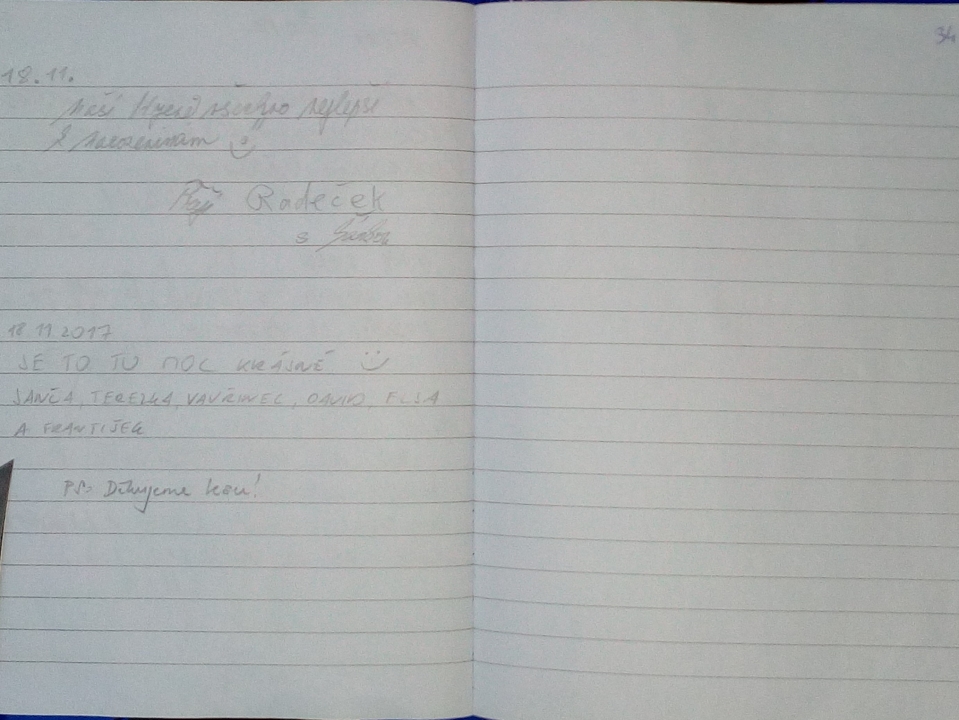 18.11.
Naší všechno nejlepší
k narozeninám
Radeček
s
18.11.2017
JE TO TU MOC KRÁSNÉ
JANČA, TEREZKA, VAVŘINEC, DAVID, ELSA
A FRANTIŠEK
PS: Děkujeme
34